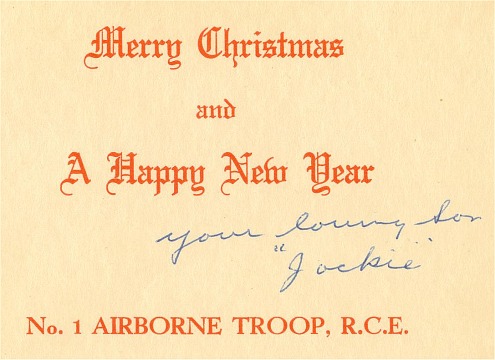 Merry Christmas
and
A Happy New Year
your loving son
"Jackie"
No. 1 AIRBORNE TROOP, R.C.E.